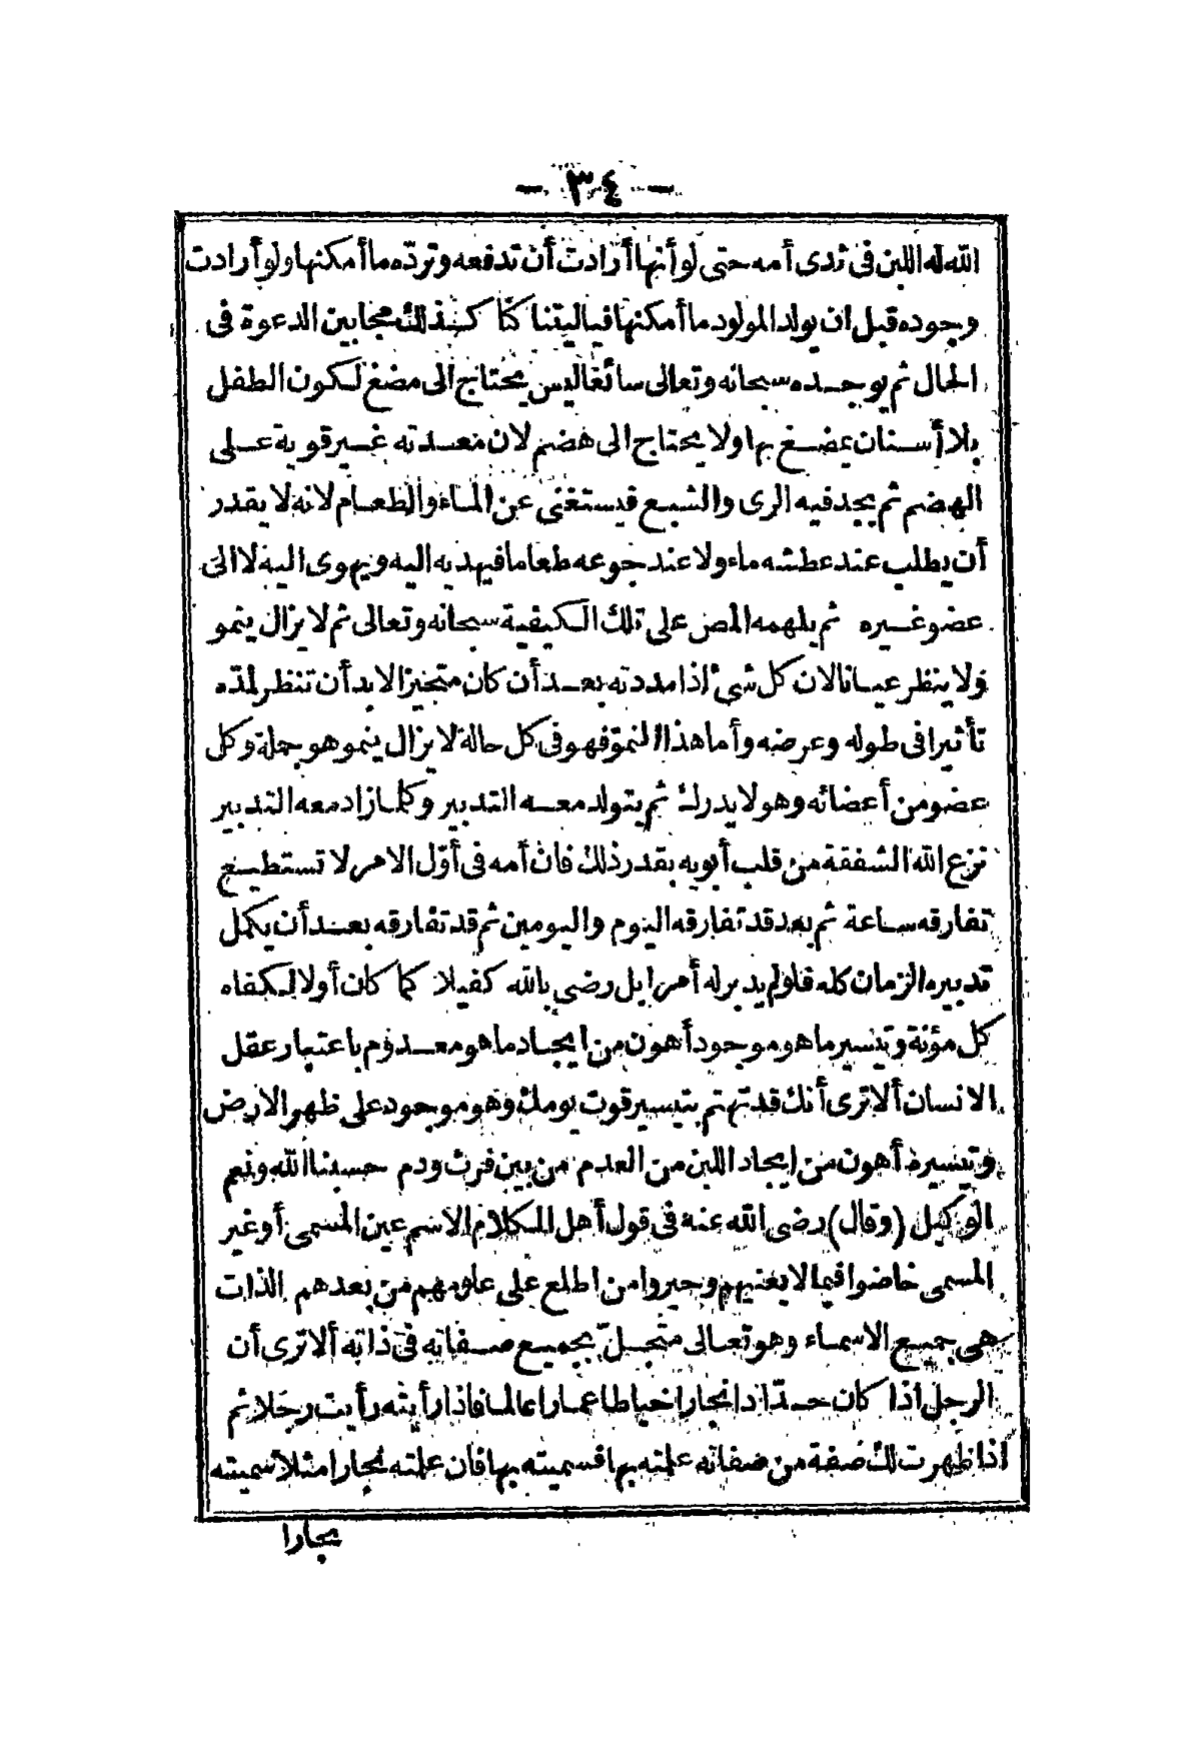 - ٣٤ -
الله له اللبن فى ثدى أمه حتى لو أنها أرادت أن تدفعه وتردّه ما أمكنها ولو أرادت
وجوده قبل ان يولد المولود ما أمكنها فياليتنا كنّا كذلك مجابين الدعوة فى
الحال ثم يوجده سبحانه وتعالى سائغا ليس يحتاج الى مضغ لكون الطفل
بلا أسنان يمضغ بها ولا يحتاج الى هضم لان معدته غير قوية على
الهضم ثم يجد فيه الرى والشبع فيستغنى عن الماء والطعام لانه لا يقدر
أن يطلب عند عطشه ماء ولا عند جوعه طعاما فيهديه اليه ويهوى اليه لا الى
عضو غيره ثم يلهمه المص على تلك الكيفية سبحانه وتعالى ثم لا يزال ينمو
ولا ينظر عيانا لان كل شئ اذا مددته بعد أن كان متحيزا لابد أن تنظر لمدّه
تأثيرا فى طوله وعرضه وأما هذا النموّ فهو فى كل حالة لا يزال ينمو هو جملة وكل
عضو من أعضائه وهو لا يدرك ثم يتولد معه التدبير وكلما زاد معه التدبير
نزع الله الشفقة من قلب أبويه بقدر ذلك فان أمه فى أوّل الامر لا تستطيع
تفارقه ساعة ثم بعد قد تفارقه اليوم واليومين ثم قد تفارقه بعد أن يكمل
تدبيره الزمان كله فلو لم يدبر له أمرا بل رضى بالله كفيلا كما كان أولا لكفاه
كل مؤنة وتيسير ما هو موجود أهون من ايجاد ما هو معدوم باعتبار عقل
الانسان ألا ترى أنك قد تهتم بتيسير قوت يومك وهو موجود على ظهر الارض
وتيسيره أهون من ايجاد اللبن من العدم من بين فرث ودم حسبنا الله ونعم
الوكيل (وقال) رضى الله عنه فى قول أهل الكلام الاسم عين المسمى أو غير
المسمى خاضوا فيما لا يعنيهم وحيروا من اطلع على علومهم من بعدهم الذات
هى جميع الاسماء وهو تعالى متجلّ بجميع صفاته فى ذاته ألا ترى أن
الرجل اذا كان حدّادا نجارا خياطا عمارا عالما فاذا رأيته رأيت رجلا ثم
اذا ظهرت لك صفة من صفاته علمته بها فسميته بها فان علمته نجارا مثلا سميته
نجارا